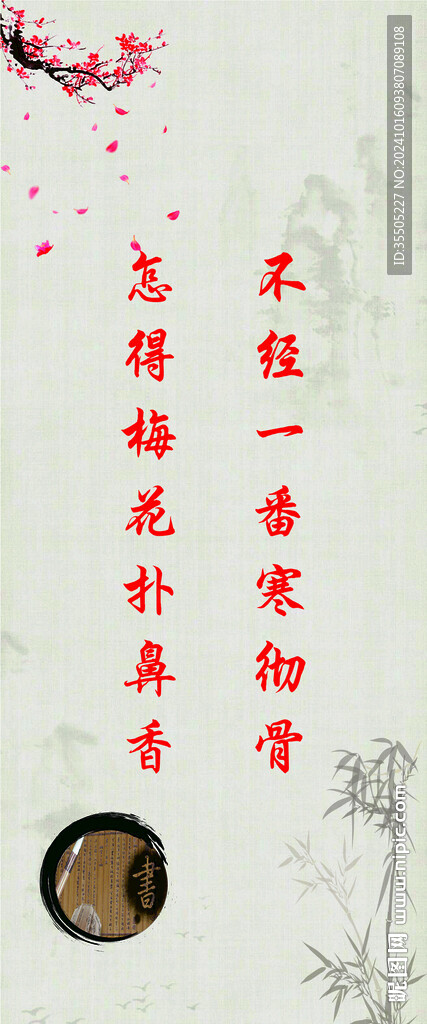 不经一番寒彻骨
怎得梅花扑鼻香
書
ID:35505227 NO:20241016093807089108
昵图网 www.nipic.com